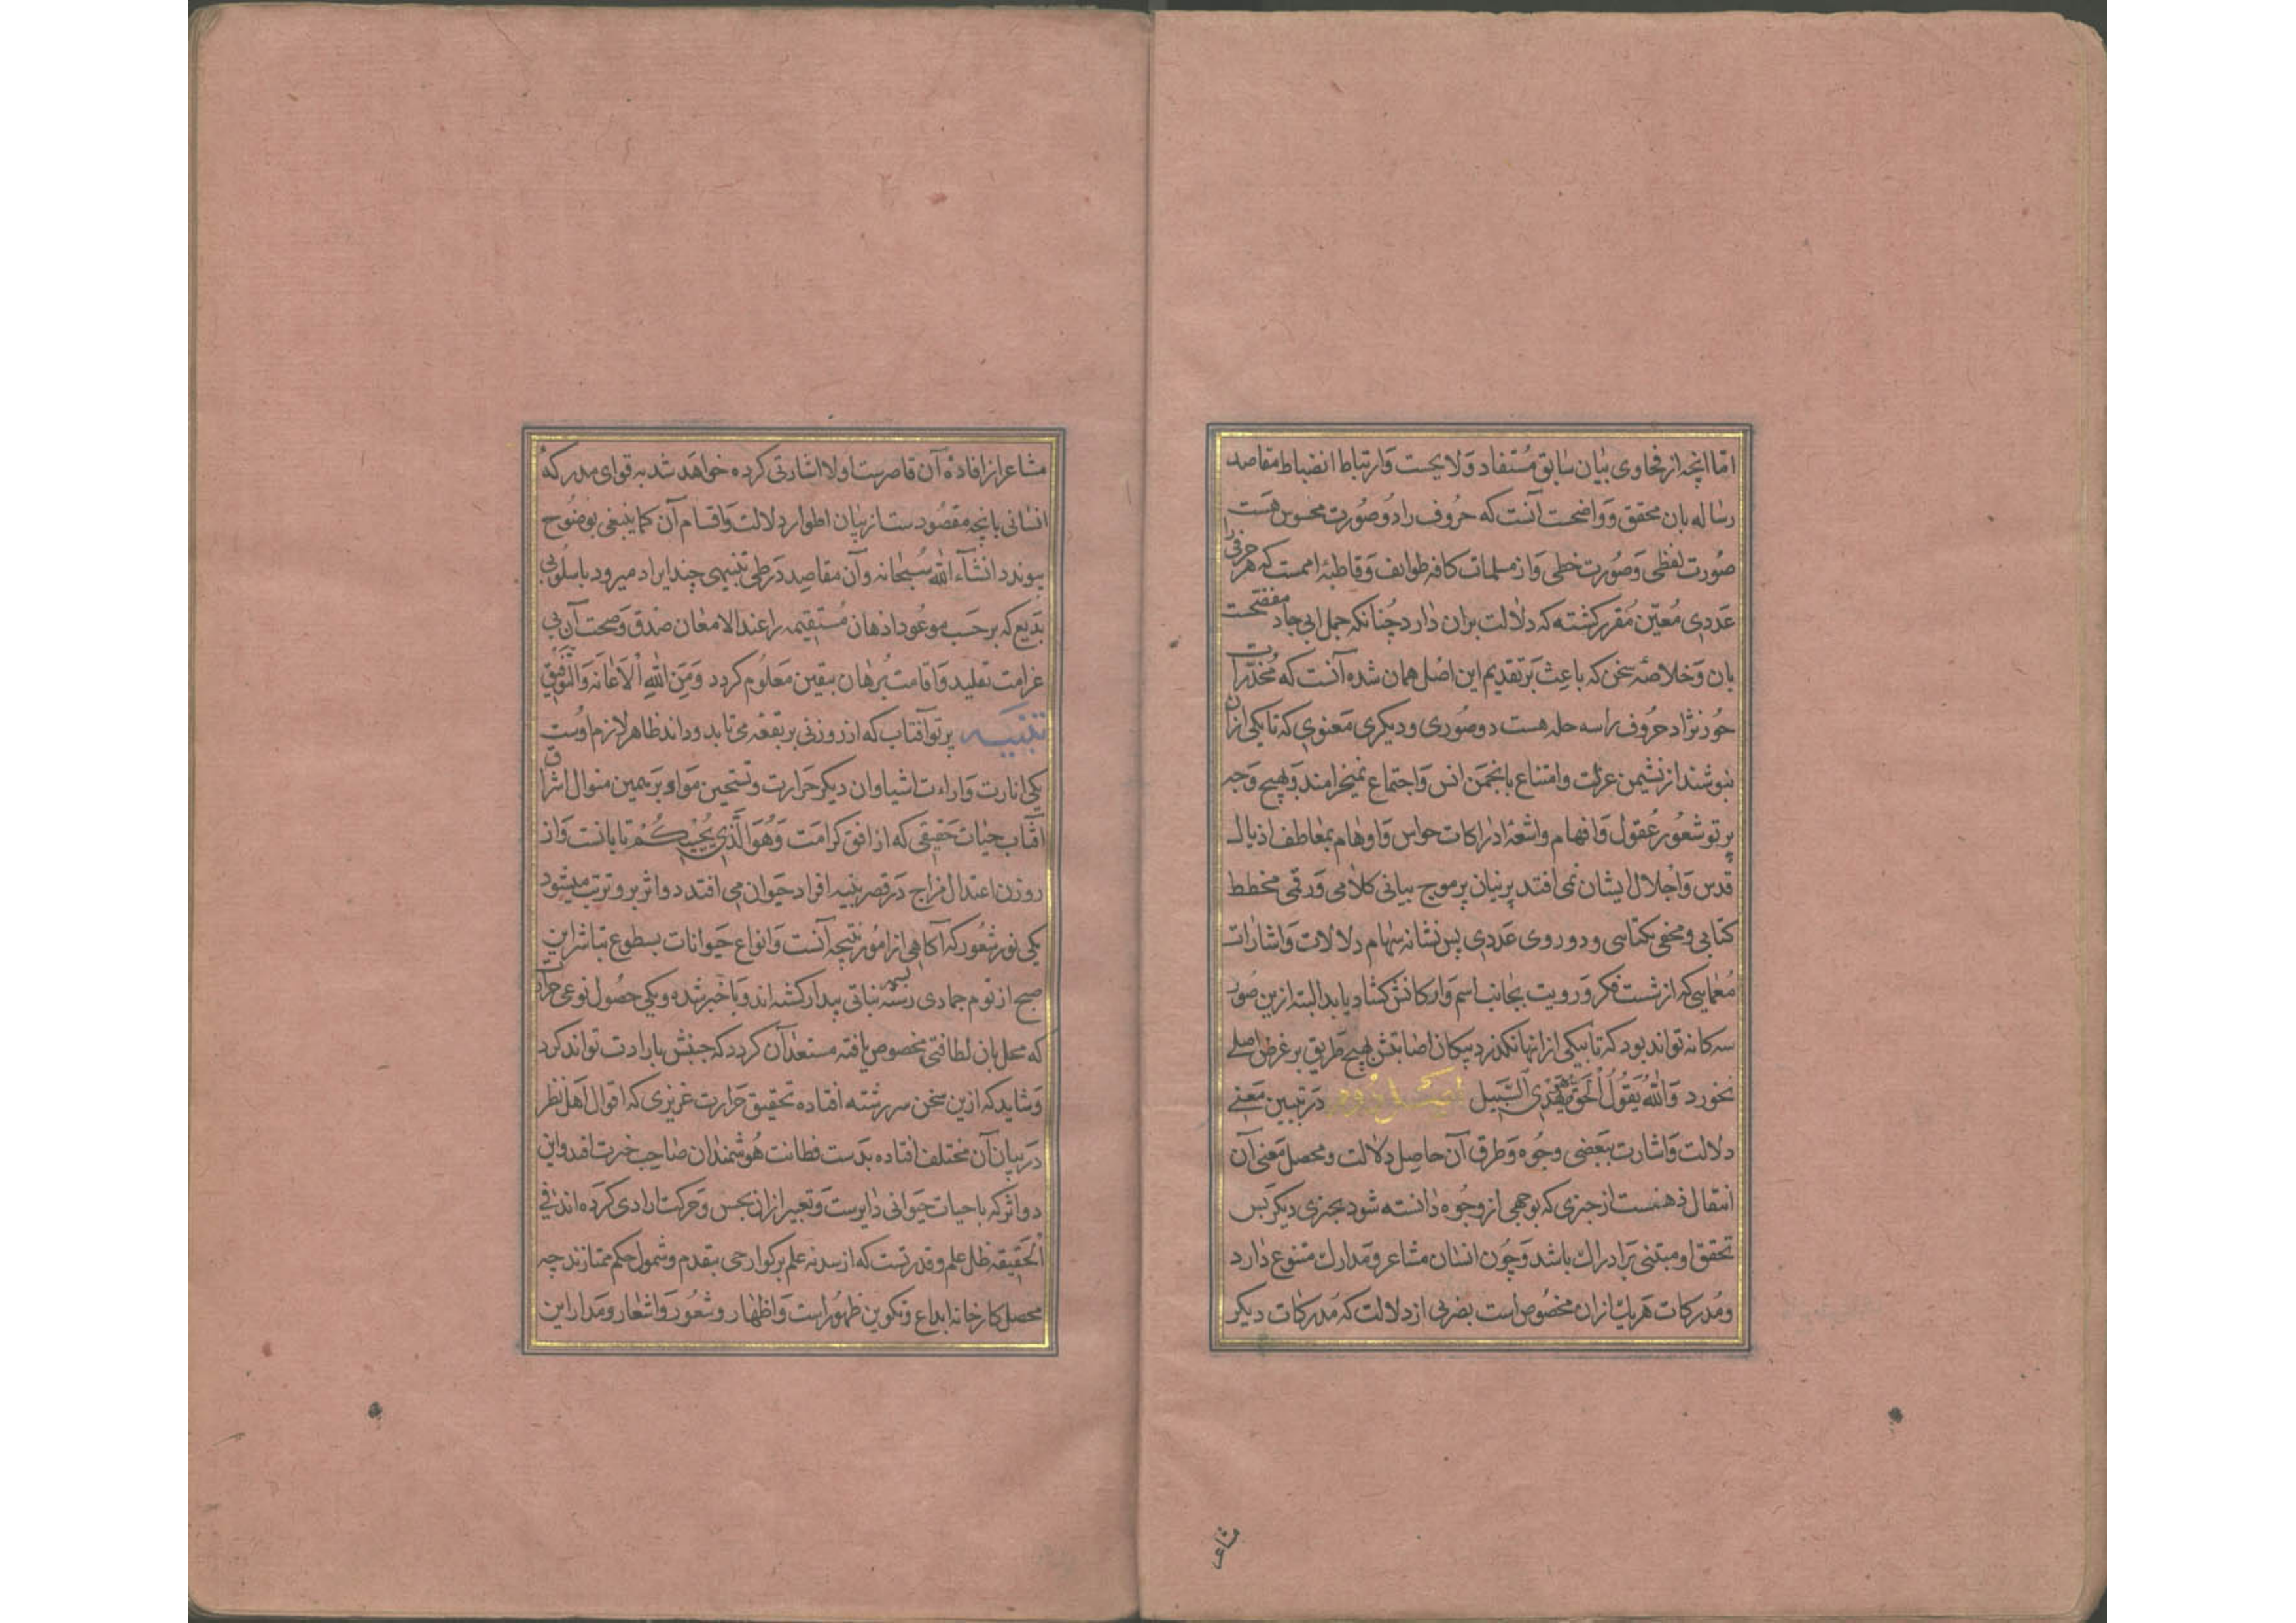 اما انچه از فحاوی بیان سابق مستفاد و لایحست و ارتباط انضباط مقاصد
رساله بان محقق و واضحست آنست که حروف را دو صورت محسوس هست
صورت لفظی و صورت خطی و از مسلمات کافه طوایف و قاطبهٔ اممست که هر حرفی را
عددی معین مقرر کشته که دلالت بران دارد چنانکه جمل ابی جاد مفتحست
بان و خلاصهٔ سخن که باعث بر تقدیم این اصل همان شده آنست که مخدرات
حور نژاد حروف را سه حله هست دو صوری و دیکری معنوی که تا یکی ازان
نپوشند از نشیمن عزلت و امتناع بانجمن انس و اجتماع نمیخرامند و بهیچ وجه
پرتو شعور عقول و افهام و اشعهٔ ادراکات حواس و اوهام بمعاطف اذیال
قدس و اجلال ایشان نمی افتد پرنیان پرموج بیانی کلامی و رقمی مخطط
کتابی و مخفی یکتاسی و دو روی عددی پس نشانه سهام دلالات و اشارات
معمایی که از شست فکر و رویت بجانب اسم و ارکانش کشاد یابد البته ازین صور
سه کانه تواند بود که تا بیکی از انها نکذرد پیکان اصابتش بهیچ طریق بر غرض اصلی
نخورد وَاللهُ يَقُولُ الْحَقَّ وَهُوَ يَهْدِي السَّبِيل اصل دوم در تبیین معنی
دلالت و اشارت ببعضی وجوه و طرق آن حاصل دلالت و محصل معنی آن
انتقال ذهنست از چیزی که بوجهی از وجوه دانسته شود بچیزی دیکر پس
تحقق او مبتنی بر ادراک باشد و چون انسان مشاعر و مدارک متنوع دارد
و مدرکات هر یک ازان مخصوص است بضربی از دلالت که مدرکات دیکر
مشاعر
مشاعر از افادهٔ آن قاصرست اولا اشارتی کرده خواهد شد به قوای مدرکهٔ
انسانی بانچه مقصودست از بیان اطوار دلالت و اقسام آن کما ینبغی بوضوح
پیوندد انشآء الله سبحانه و آن مقاصد در طی تنبیهی چند ایراد میرود باسلوبی
بدیع که بر حسب موعود اذهان مستقیمه را عند الامعان صدق و صحت آن بی
غرامت تقلید و اقامت برهان بیقین معلوم کردد وَمِنَ اللهِ الْاَعانَه وَالتَّوْفيق
تنبیه پرتو آفتاب که از روزنی بر بقعه می تابد دو اثر ظاهر لازم اوست
یکی انارت و اراءت اشیا و ان دیکر حرارت و تسخین مواد و بر همین منوال اشراق
آفتاب حیات حقیقی که از افق کرامت وَهُوَ الَّذِي يُحْيِيكُمْ تابانست و از
روزن اعتدال مزاج در قصر بنیه افراد حیوان می افتد دو اثر برو ترتب میشود
یکی نور شعور که آکاهی از امور نتیجه آنست و انواع حیوانات بسطوع تباشر این
صبح از نوم جمادی رسته نباتی بیدار کشته اند و با خبر شده و یکی حصول نوعی حرارت
که محل بان لطافتی مخصوص یافته مستعد آن کردد که جنبش بارادت تواند کرد
و شاید که ازین سخن سر رشته افتاده تحقیق حرارت غریزی که اقوال اهل نظر
در بیان آن مختلف افتاده بدست فطانت هوشمندان صاحب خبرت افتد و این
دو اثر که با حیات حیوانی دایرست و تعبیر ازان بحس و حرکت ارادی کرده اند فی
الحقیقه ظل علم و قدرتست که از سدنه علم بر کوار حی بتقدم و شمول حکم ممتازند چه
محصل کارخانه ابداع و تکوین ظهور است و اظهار و شعور و اشعار و مدار این